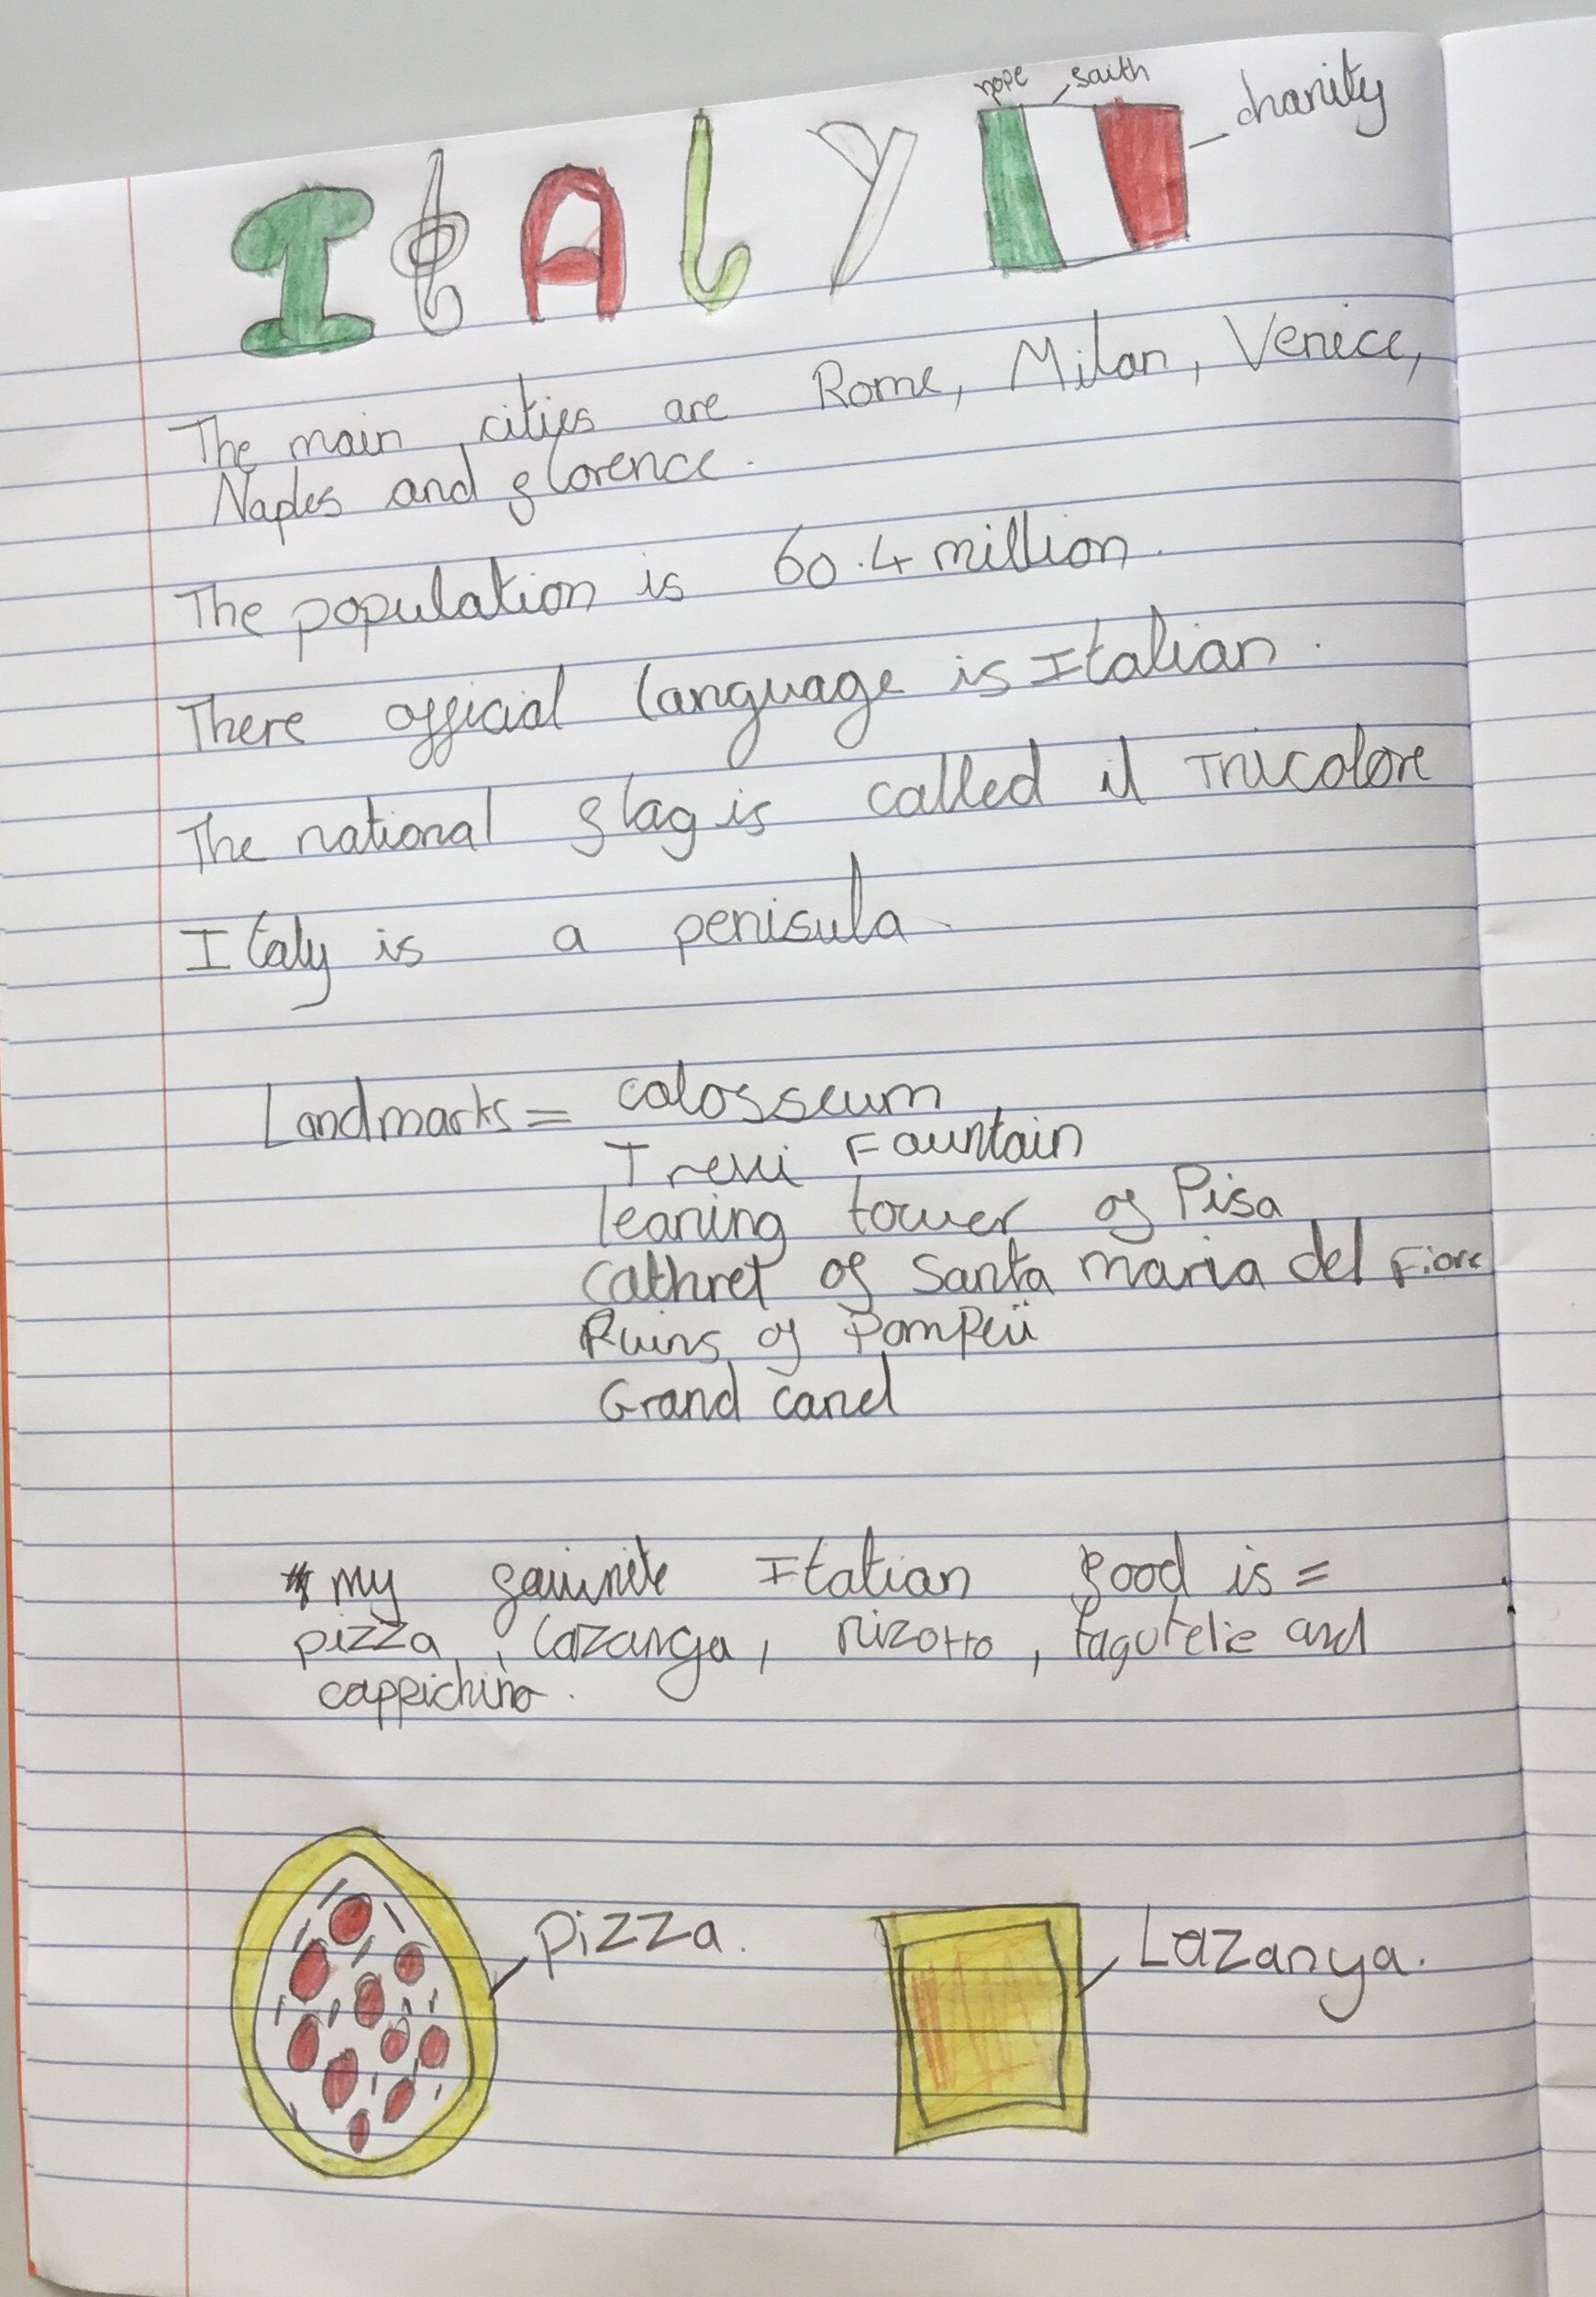 hope faith charity
ItALY
The main cities are Rome, Milan, Venice,
Naples and florence.
The population is 60.4 million.
There official language is Italian.
The national flag is called il Tricolore
Italy is a penisula.
Landmarks = colosseum
Trevi Fountain
leaning tower of Pisa
Cathret of Santa maria del Fiore
Ruins of Pompeii
Grand canel
*my favirite Italian food is =
pizza, lazanga, rizotto, tagutelie and
cappichino.
pizza.
Lazanya.